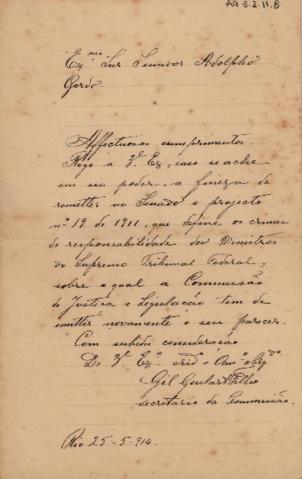 AG 3.2.11.8
Exmo Snr Senador Adolpho
Gordo.
Affectuosos cumprimentos
Rogo a V. Ex, caso se ache
em seu poder, a fineza de
remetter ao Senado o projecto
nº 19 de 1911, que define os crimes
de responsabilidade dos Ministros
do Supremo Tribunal Federal,
sobre o qual a Commissão
de Justiça e Legislação tem de
emittir novamente o seu parecer.
Com subida consideração
De V. Exª. criº e Amº obrgº
Gil Goulart Filho
secretario da Commissão.
Rio 25-5-914.